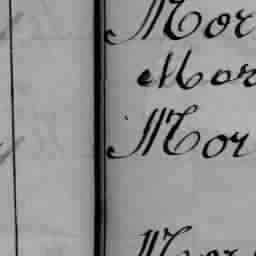 Mor
Mor
Mor
Mor